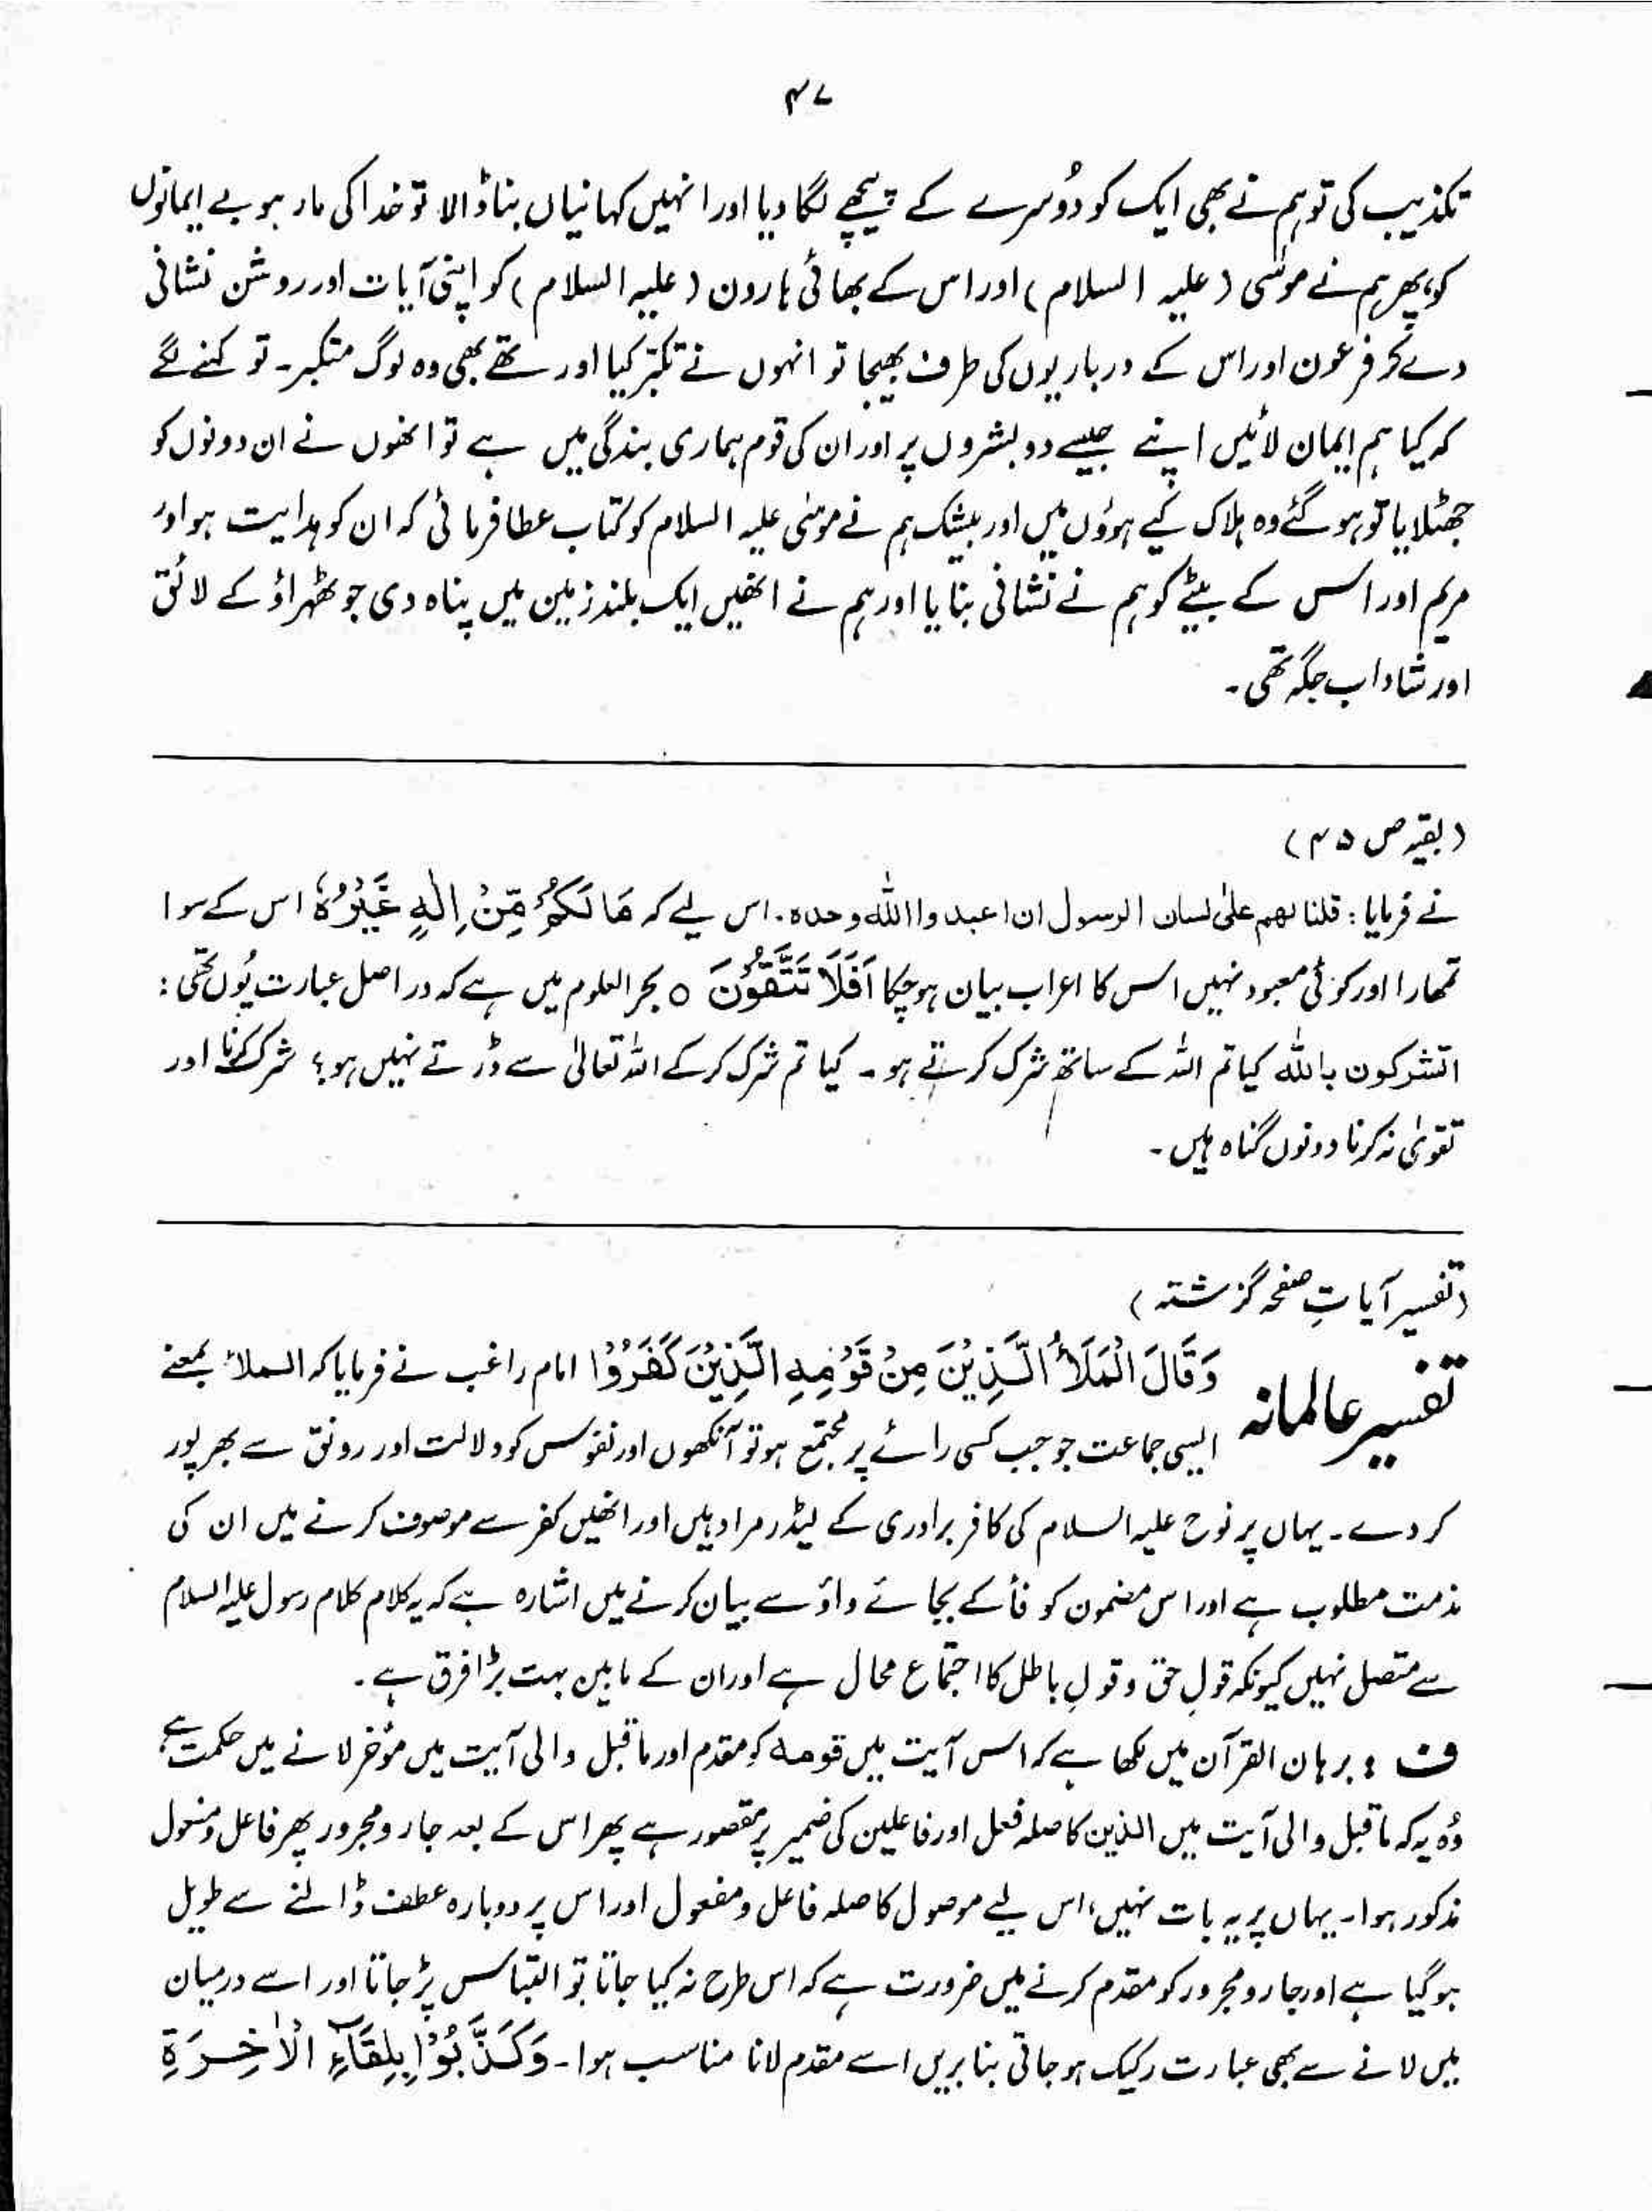 ۴۷
تکذیب کی تو ہم نے بھی ایک کو دُوسرے کے پیچھے لگا دیا اور انہیں کہانیاں بنا ڈالا تو خدا کی مار ہو بے ایمانوں
کو، پھر ہم نے موسٰی (علیہ السلام) اور اس کے بھائی ہارون (علیہ السلام) کو اپنی آیات اور روشن نشانی
دے کر فرعون اور اس کے درباریوں کی طرف بھیجا تو انہوں نے تکبّر کیا اور تھے بھی وہ لوگ متکبر۔ تو کہنے لگے
کہ کیا ہم ایمان لائیں اپنے جیسے دو بشروں پر اور ان کی قوم ہماری بندگی میں ہے تو انھوں نے ان دونوں کو
جھٹلایا تو ہو گئے وہ ہلاک کیے ہوؤں میں اور بیشک ہم نے موسٰی علیہ السلام کو کتاب عطا فرمائی کہ ان کو ہدایت ہو اور
مریم اور اس کے بیٹے کو ہم نے نشانی بنایا اور ہم نے انھیں ایک بلند زمین میں پناہ دی جو ٹھہراؤ کے لائق
اور شاداب جگہ تھی۔
(بقیہ ص ۴۵)
نے فرمایا: قلنا لھم علیٰ لسان الرسول ان اعبدوا اللّٰہ وحدہ۔ اس لیے کہ مَا لَكُمْ مِّنْ اِلٰهٍ غَيْرُهٗ اس کے سوا
تمھارا اور کوئی معبود نہیں اس کا اعراب بیان ہو چکا اَفَلَا تَتَّقُوْنَ ○ بحر العلوم میں ہے کہ در اصل عبارت یُوں تھی:
اتشرکون باللّٰہ کیا تم اللہ کے ساتھ شرک کرتے ہو۔ کیا تم شرک کر کے اللہ تعالیٰ سے ڈرتے نہیں ہو؟ شرک کرنا اور
تقویٰ نہ کرنا دونوں گناہ ہیں۔
(تفسیر آیاتِ صفحہ گزشتہ)
تفسیر عالمانہ وَقَالَ الْمَلَأُ الَّذِيْنَ مِنْ قَوْمِهِ الَّذِيْنَ كَفَرُوْا امام راغب نے فرمایا کہ الملاء بمعنے
ایسی جماعت جو جب کسی رائے پر مجتمع ہو تو آنکھوں اور نفوس کو دلالت اور رونق سے بھرپور
کر دے۔ یہاں پر نوح علیہ السلام کی کافر برادری کے لیڈر مراد ہیں اور انھیں کفر سے موصوف کرنے میں ان کی
مذمت مطلوب ہے اور اس مضمون کو فأ کے بجائے واؤ سے بیان کرنے میں اشارہ ہے کہ یہ کلام کلام رسول علیہ السلام
سے متصل نہیں کیونکہ قولِ حق و قولِ باطل کا اجتماع محال ہے اور ان کے مابین بہت بڑا فرق ہے۔
ف: برہان القرآن میں لکھا ہے کہ اس آیت میں قومہ کو مقدم اور ماقبل والی آیت میں مؤخر لانے میں حکمت ہے
وُہ یہ کہ ماقبل والی آیت میں الذین کا صلہ فعل اور فاعلین کی ضمیر پر مقصور ہے پھر اس کے بعد جار و مجرور پھر فاعل و مفعول
مذکور ہوا۔ یہاں پر یہ بات نہیں، اس لیے موصول کا صلہ فاعل و مفعول اور اس پر دوبارہ عطف ڈالنے سے طویل
ہو گیا ہے اور جار و مجرور کو مقدم کرنے میں ضرورت ہے کہ اس طرح نہ کیا جاتا تو التباس پڑ جاتا اور اسے درمیان
میں لانے سے بھی عبارت رکیک ہو جاتی بنا بریں اسے مقدم لانا مناسب ہوا۔ وَكَذَّبُوْا بِلِقَآءِ الْاٰخِرَةِ